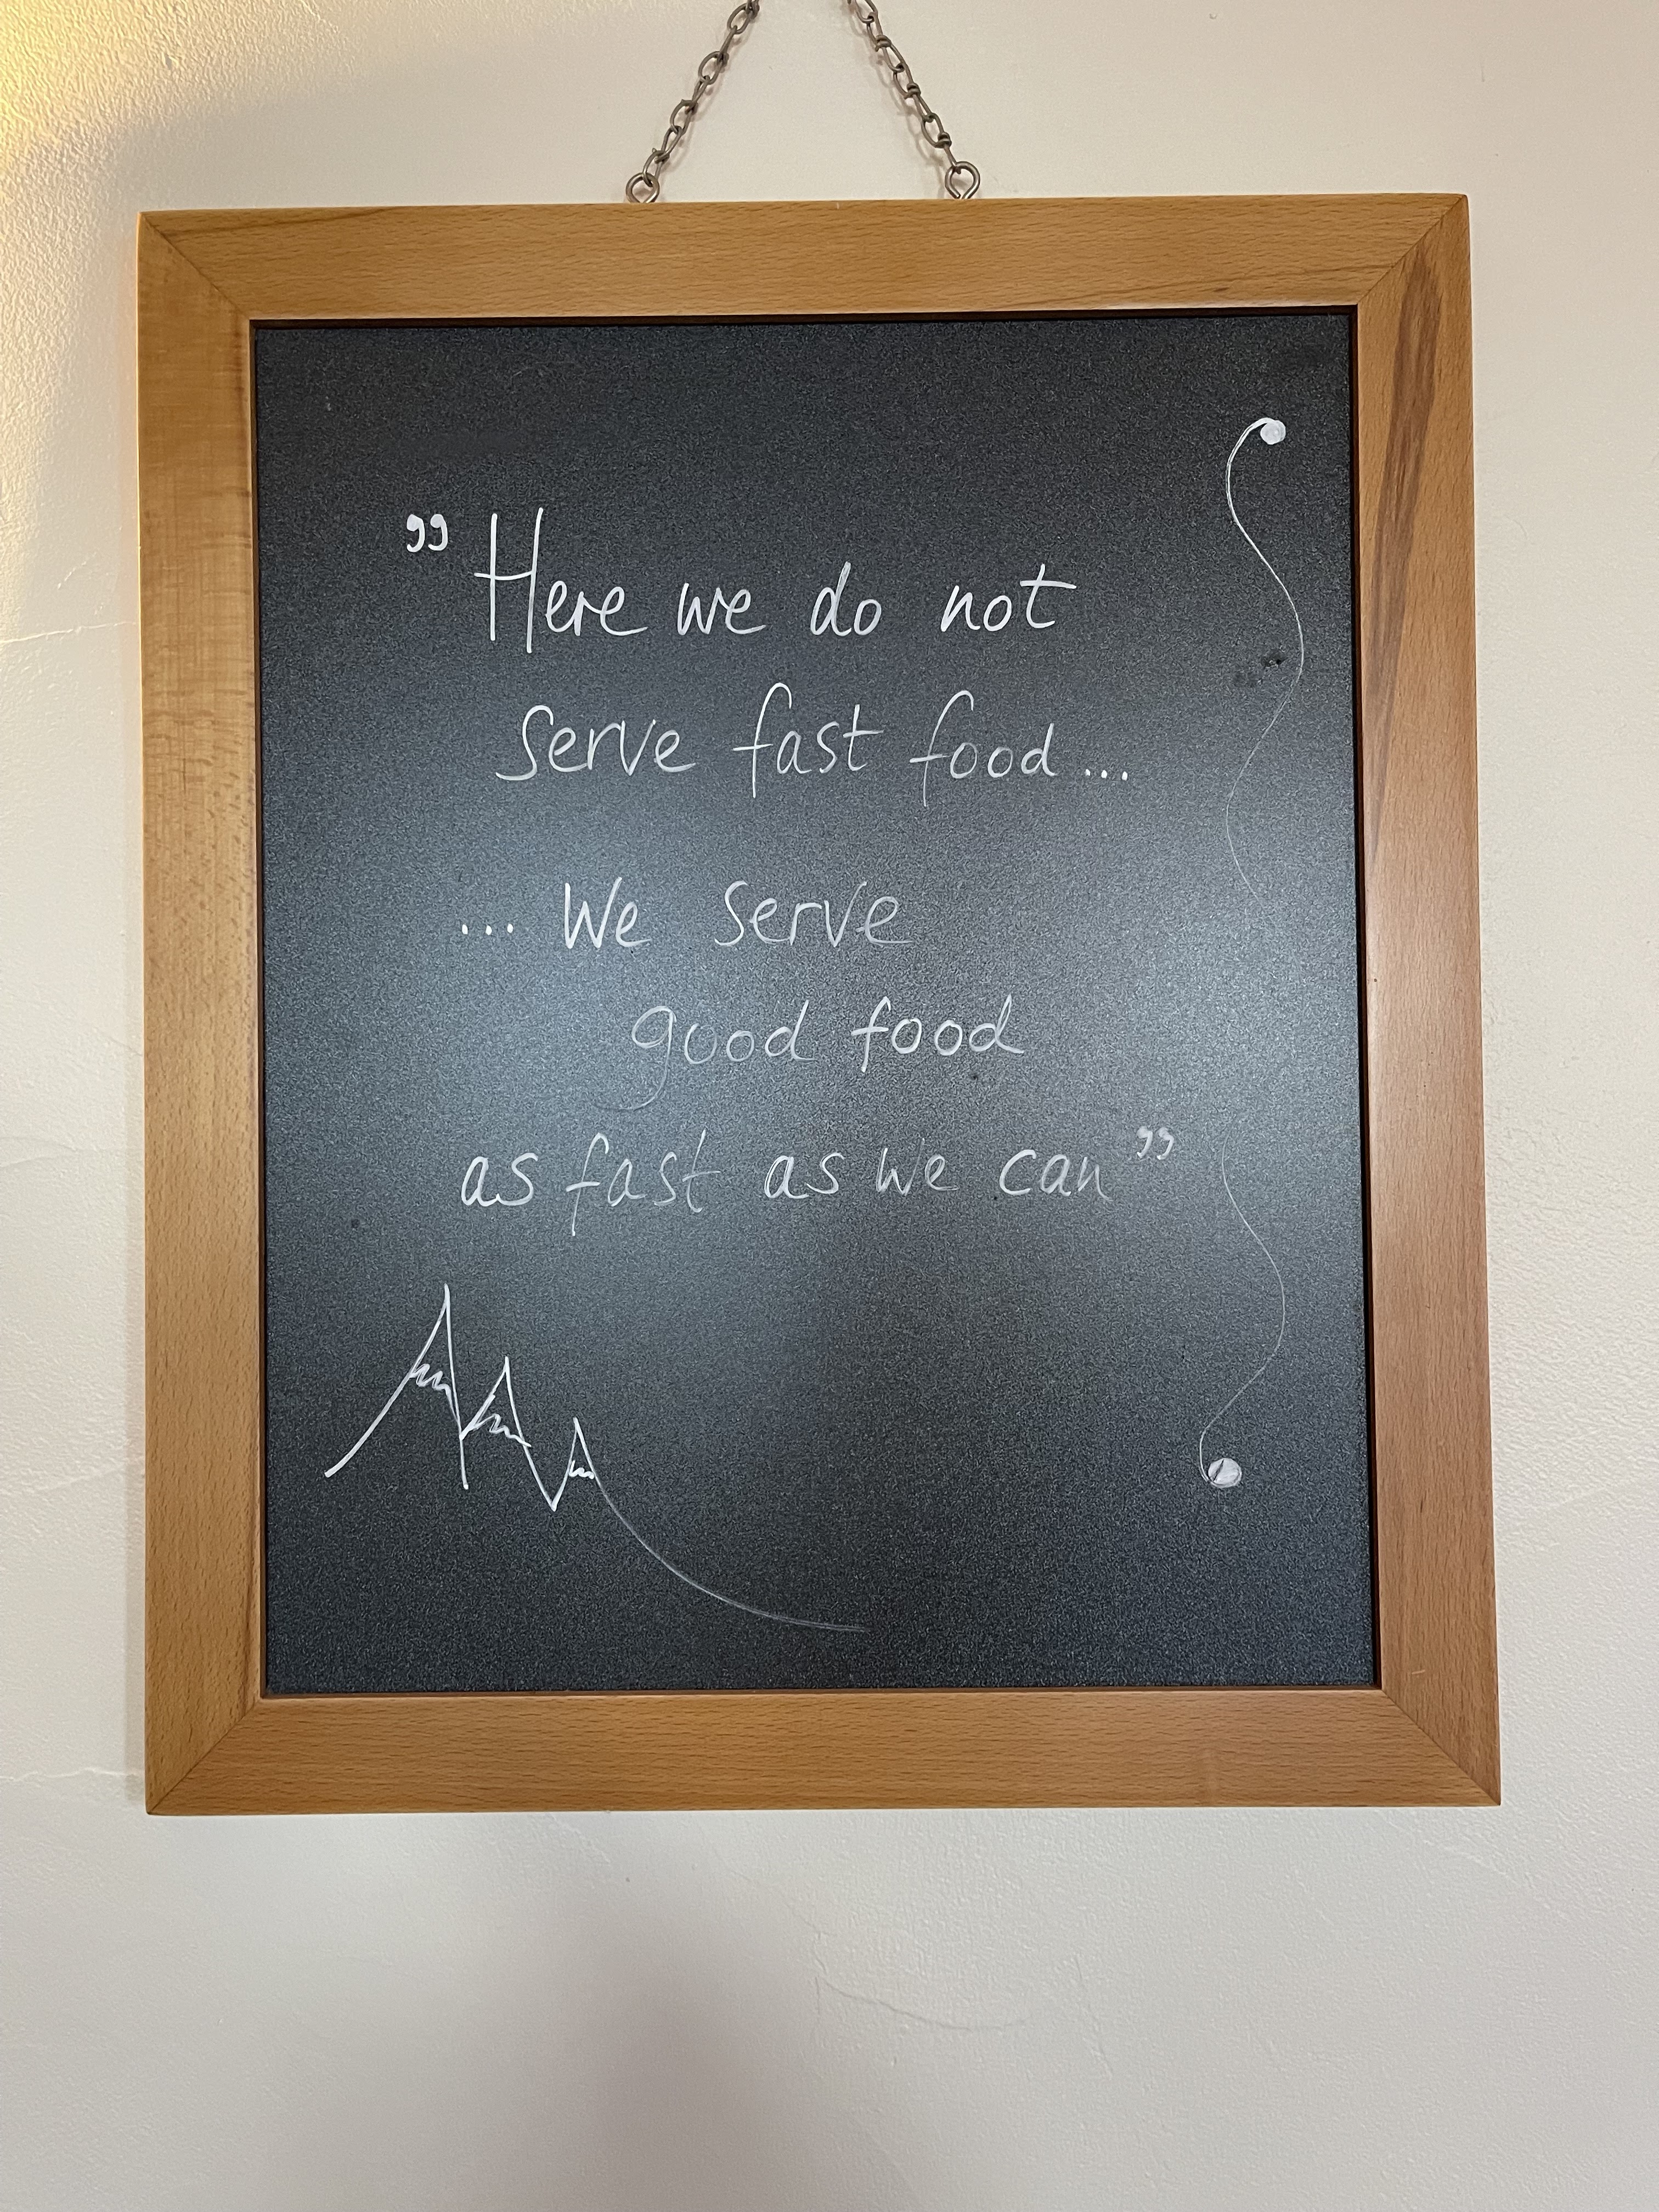 ”Here we do not
serve fast food...
... We serve
good food
as fast as we can”